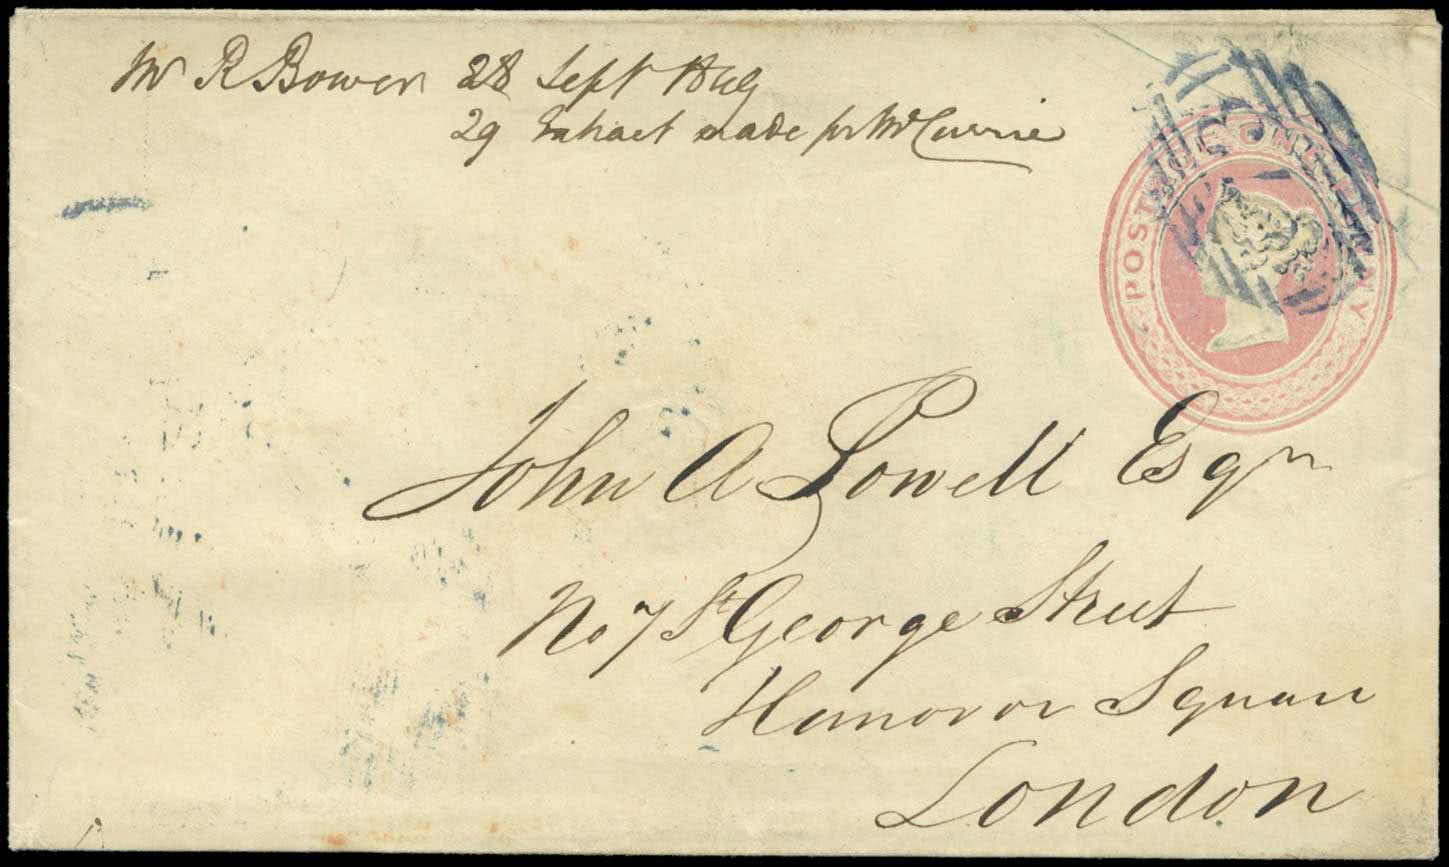 Mr R Bower 28 Sept
29 Extract made for Mr Currie
POSTAGE ONE PENNY
John A Powell Esqr
No 7 St George Street
Hanover Square
London